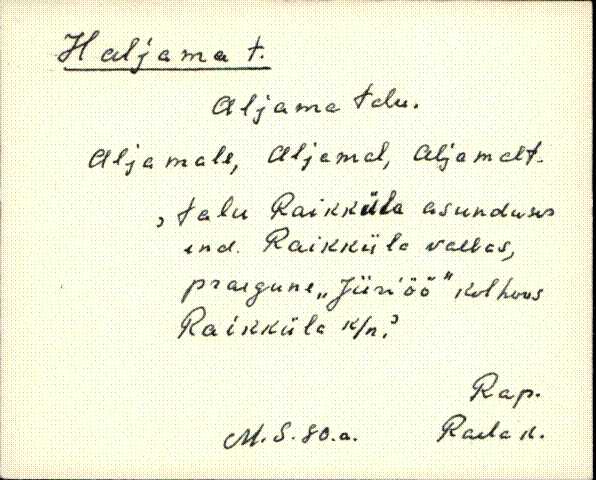 Haljama t.
Aljama talu.
Aljamale, Aljamal, Aljamalt.
, talu Raikküla asunduses
end. Raikküla vallas,
praegune „Jüriöö" kolhoos
Raikküla k/n.’
Rap.
M. S. 80.a. Raela k.